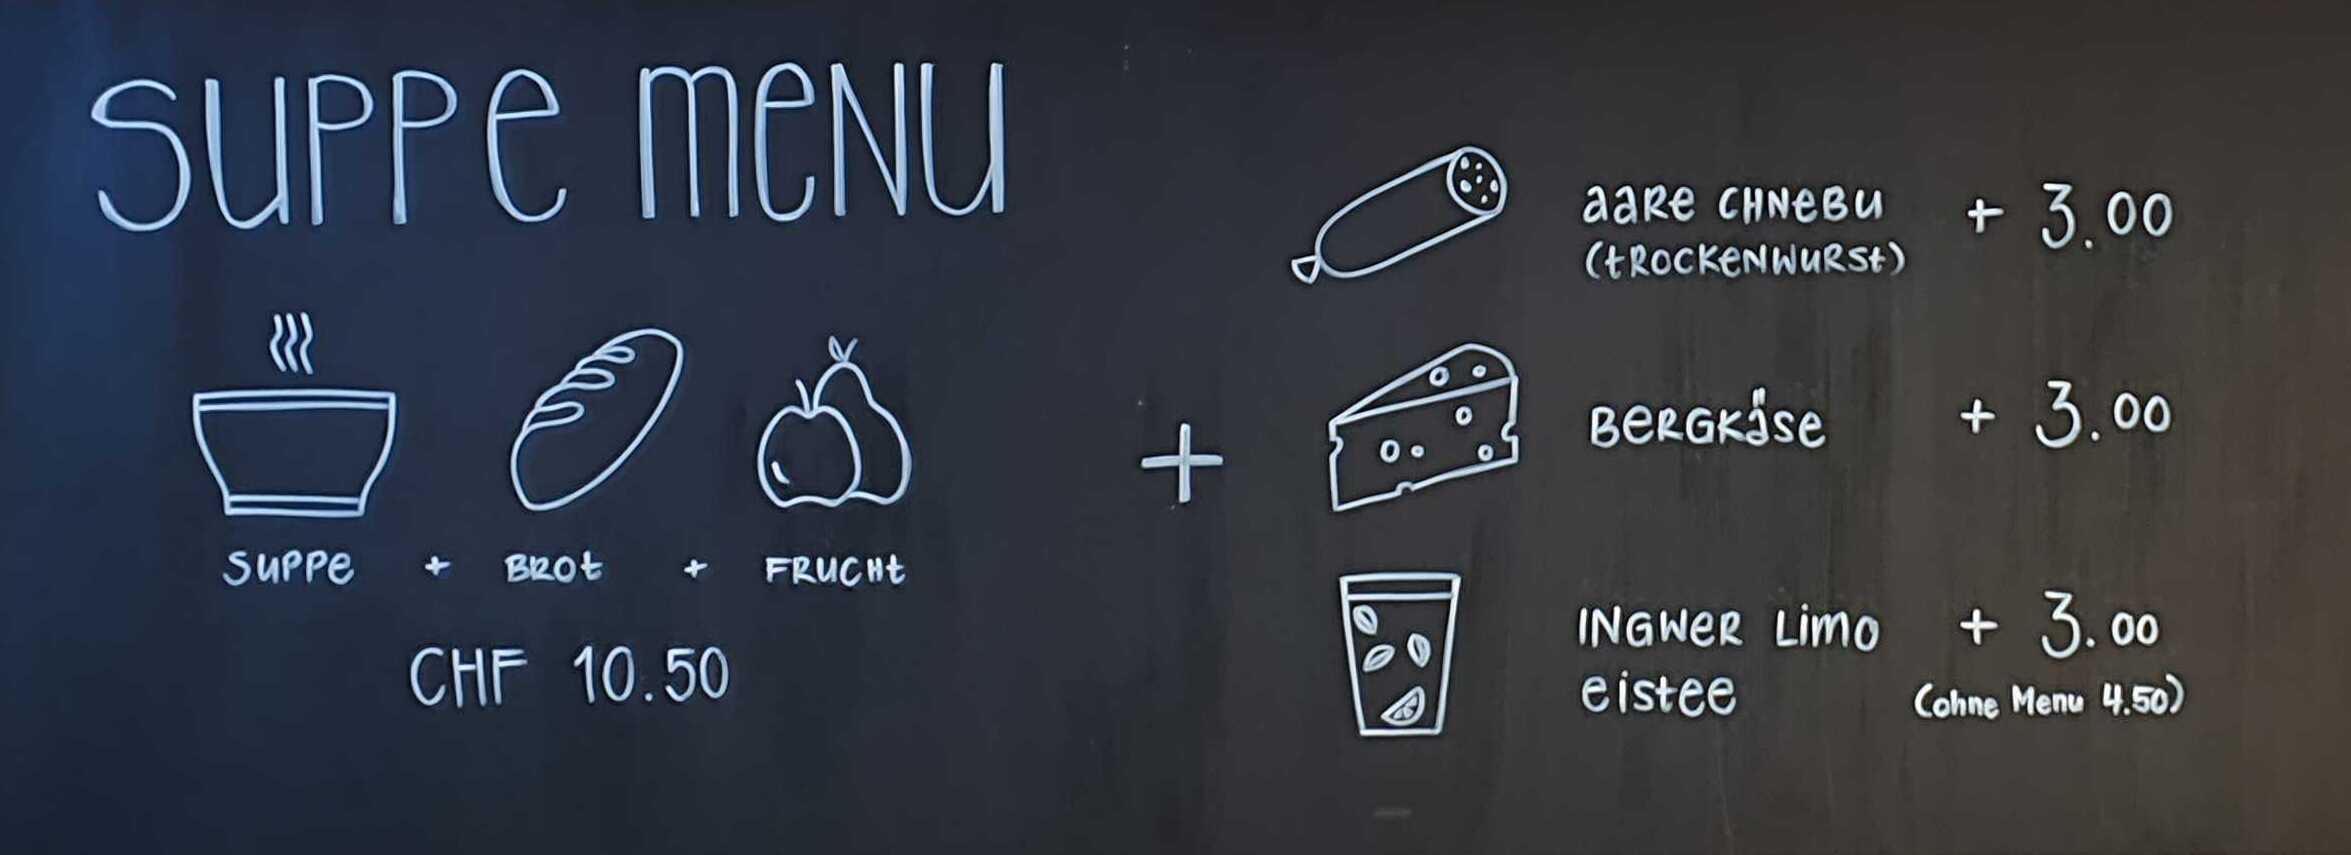 SUPPE MENU
SUPPE + BROT + FRUCHT
CHF 10.50
+
AARE CHNEBU + 3.00
(TROCKENWURST)
BERGKÄSE + 3.00
INGWER LIMO + 3.00
EISTEE (ohne Menu 4.50)